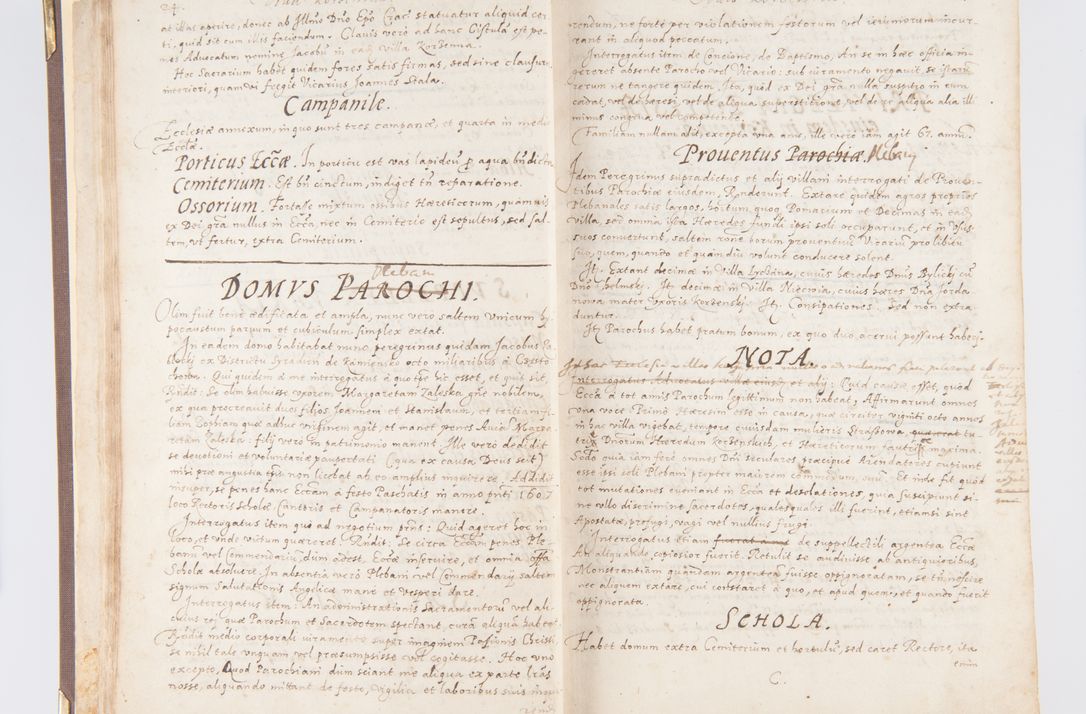 24.
at illas aperire, donec ab Illmo Dno Epo Crac: statuatur aliquid cer-
ti, quid sit cum illis faciendum. Clavis verò ad hanc Cistulā est pe-
nes Advocatum nomine Jacobū in eadē villa Korzenna.
Hoc Sacrarium habet quidem fores satis firmas, sed sine clausura
interiori, quam vi fregit Vicarius Joannes Skala.
Campanile.
Ecclesiæ annexum, in quo sunt tres campanæ, et quarta in medio
Ecclā.
Porticus Eccæ. In porticu est vas lapideū p aqua bndicta
Cemiterium. Est bn cinctum, indiget tn reparatione.
Ossorium. Fortasse mixtum ossibus Hæreticorum, quamvis
ex Dei grā nullus in Eccā, nec in Cemiterio est sepultus, sed sal-
tem, ut fertur, extra Cemiterium.
Plebani
DOMVS PAROCHI.
Olim fuit bene ædificata et ampla, nunc verò saltem vnicum hy-
pocaustum parvum et cubiculum simplex extat.
In eadem domo habitabat nunc peregrinus quidam Jacobus
ex Districtu Syradiń de Kamiensko octo miliaribus à Czesto-
chovia. Qui quidem à me interrogatus à quo tpr hic esset, et quis sit
Rndit: Se olim habuisse vxorem Margaretam Zaleska grīe nobilem,
ex qua procreavit duos filios, Joannem et Stanislaum, et tertiam fi-
liam Sophiam quæ adhuc virginem agit, et manet penes Avia Marga-
retam Zaleska: filij verò in patrimonio manent. Ille verò dedidit
se devotioni et voluntariæ paupertati (qua ex causa Deus scit)
mihi præ angustia tpis non licebat ab eo amplius inquirere. Addidit
insuper, se penes hanc Eccam à festo Paschatis in anno pnti 1607
loco Rectoris Scholæ Cantoris et Campanatoris manere.
Interrogatus item quo ad negotium pnis: Quid ageret hoc in
loco, et vnde victum quæreret. Rndit: Se circa Eccam penes Ple-
banū vel Commendariū, dum adest, Eccæ inservire, et omnia offa
Scholæ absolvere. In absentia verò Plebani vel Commendarij saltem
signum Salutationis Angelicæ mane et vesperi dare.
Interrogatus item: An administrationis Sacramentorū vel ali-
cuius rei, quæ Parochum et Sacerdotem spectant, curā aliquā habeat
Rndit medio corporali iuramento super imaginem Passionis Christi,
se nihil tale vnquam vel præsumpsisse vel cogitasse. Hoc vno
excepto, Quod Parochiani dum sciant me aliqua ex parte lras
nosse, aliquando mittant de festo, vigilia et laboribus suis inqui-
rendi
rendum, ne fortè per violationem festorum vel ieiuniorum incur-
rant in aliquod peccatum.
Interrogatus item de Concione, de Baptismo, An se in hæc officia in-
gereret absente Parocho vel Vicario: sub iuramento negavit se istarū
rerum ne tangere quidem. Ita, quòd ex Dei grā nulla suspitio in eum
cadat, vel de hæresi, vel de aliqua superstitione, vel de re aliqua alia illi
minus congrua vel competente.
Familiam nullam alit, excepta vna anu, ille verò iam agit 67. annū.
Prouentus Parochiæ. Plebani
Idem Peregrinus supradictus et alij villani interrogati de Proven-
tibus Parochiæ eiusdem, Rnderunt. Extare quidem agros proprios
Plebanales satis largos, hortum, quoq Pomarium et Decimas in eadē
villa, sed omnia ista Hæredes fundi ipsi soli occuparunt, et in Vsus
suos convertunt, saltem rōne horum proventuū Vicariū pro libitu
suo, quem, quando et quamdiu volunt conducere solent.
Jt. Extant decimæ in Villa Lyczana, cuius hæredes Dnus Bylicki cū
Dno Chelmski. Jt. decimæ in Villa Niecwia, cuius hæres Dna Jorda-
nowa mater vxoris Korzenskj. Jt. Consipationes. Sed non extra-
duntur.
Jt. Parochus habet pratum bonum, ex quo duo acervi possunt haberj.
NOTA.
Interrogatus Advocatus villæ eiusdē, et alij: Quid causæ esset, quòd
Ecca à tot annis Parochum legittimum non habeat, Affirmarunt omnes
vna voce Primò Hæresim esse in causa, quæ circiter viginti octo annos
in hac villa vigebat, tempore cuiusdam mulieris Straszowa, quæ erat tu-
trix Dnorum Hæredum Korzenskich, et Hæreticorum fautrix maxima.
Sedo quia iam ferè omnes Dni seculares præcipuè Arendatores cupiunt
esse ipsi soli Plebani propter maiorem commodum, suū. Et inde fit quòd
tot mutationes eveniant in Ecca et desolationes, quia suscipiunt si-
ne vllo discrimine Sacerdotes, qualesquales illi fuerint, etiamsi sint
Apostatæ, profugi, vagi vel nullius frugi.
Interrogatus etiam fuerat à me de suppellectili argentea Eccæ
An aliquando copiosior fuerit. Retulit se audivisse ab antiquioribus,
Monstrantiam quandam argenteā fuisse oppignoratam, se tn nescire
nec aliquem extare, cui constaret à quo, et apud quem, et quando fuerit
oppignorata.
SCHOLA.
Habet domum extra Cemiterium et hortulū, sed caret Rectore, ita
enim
C.